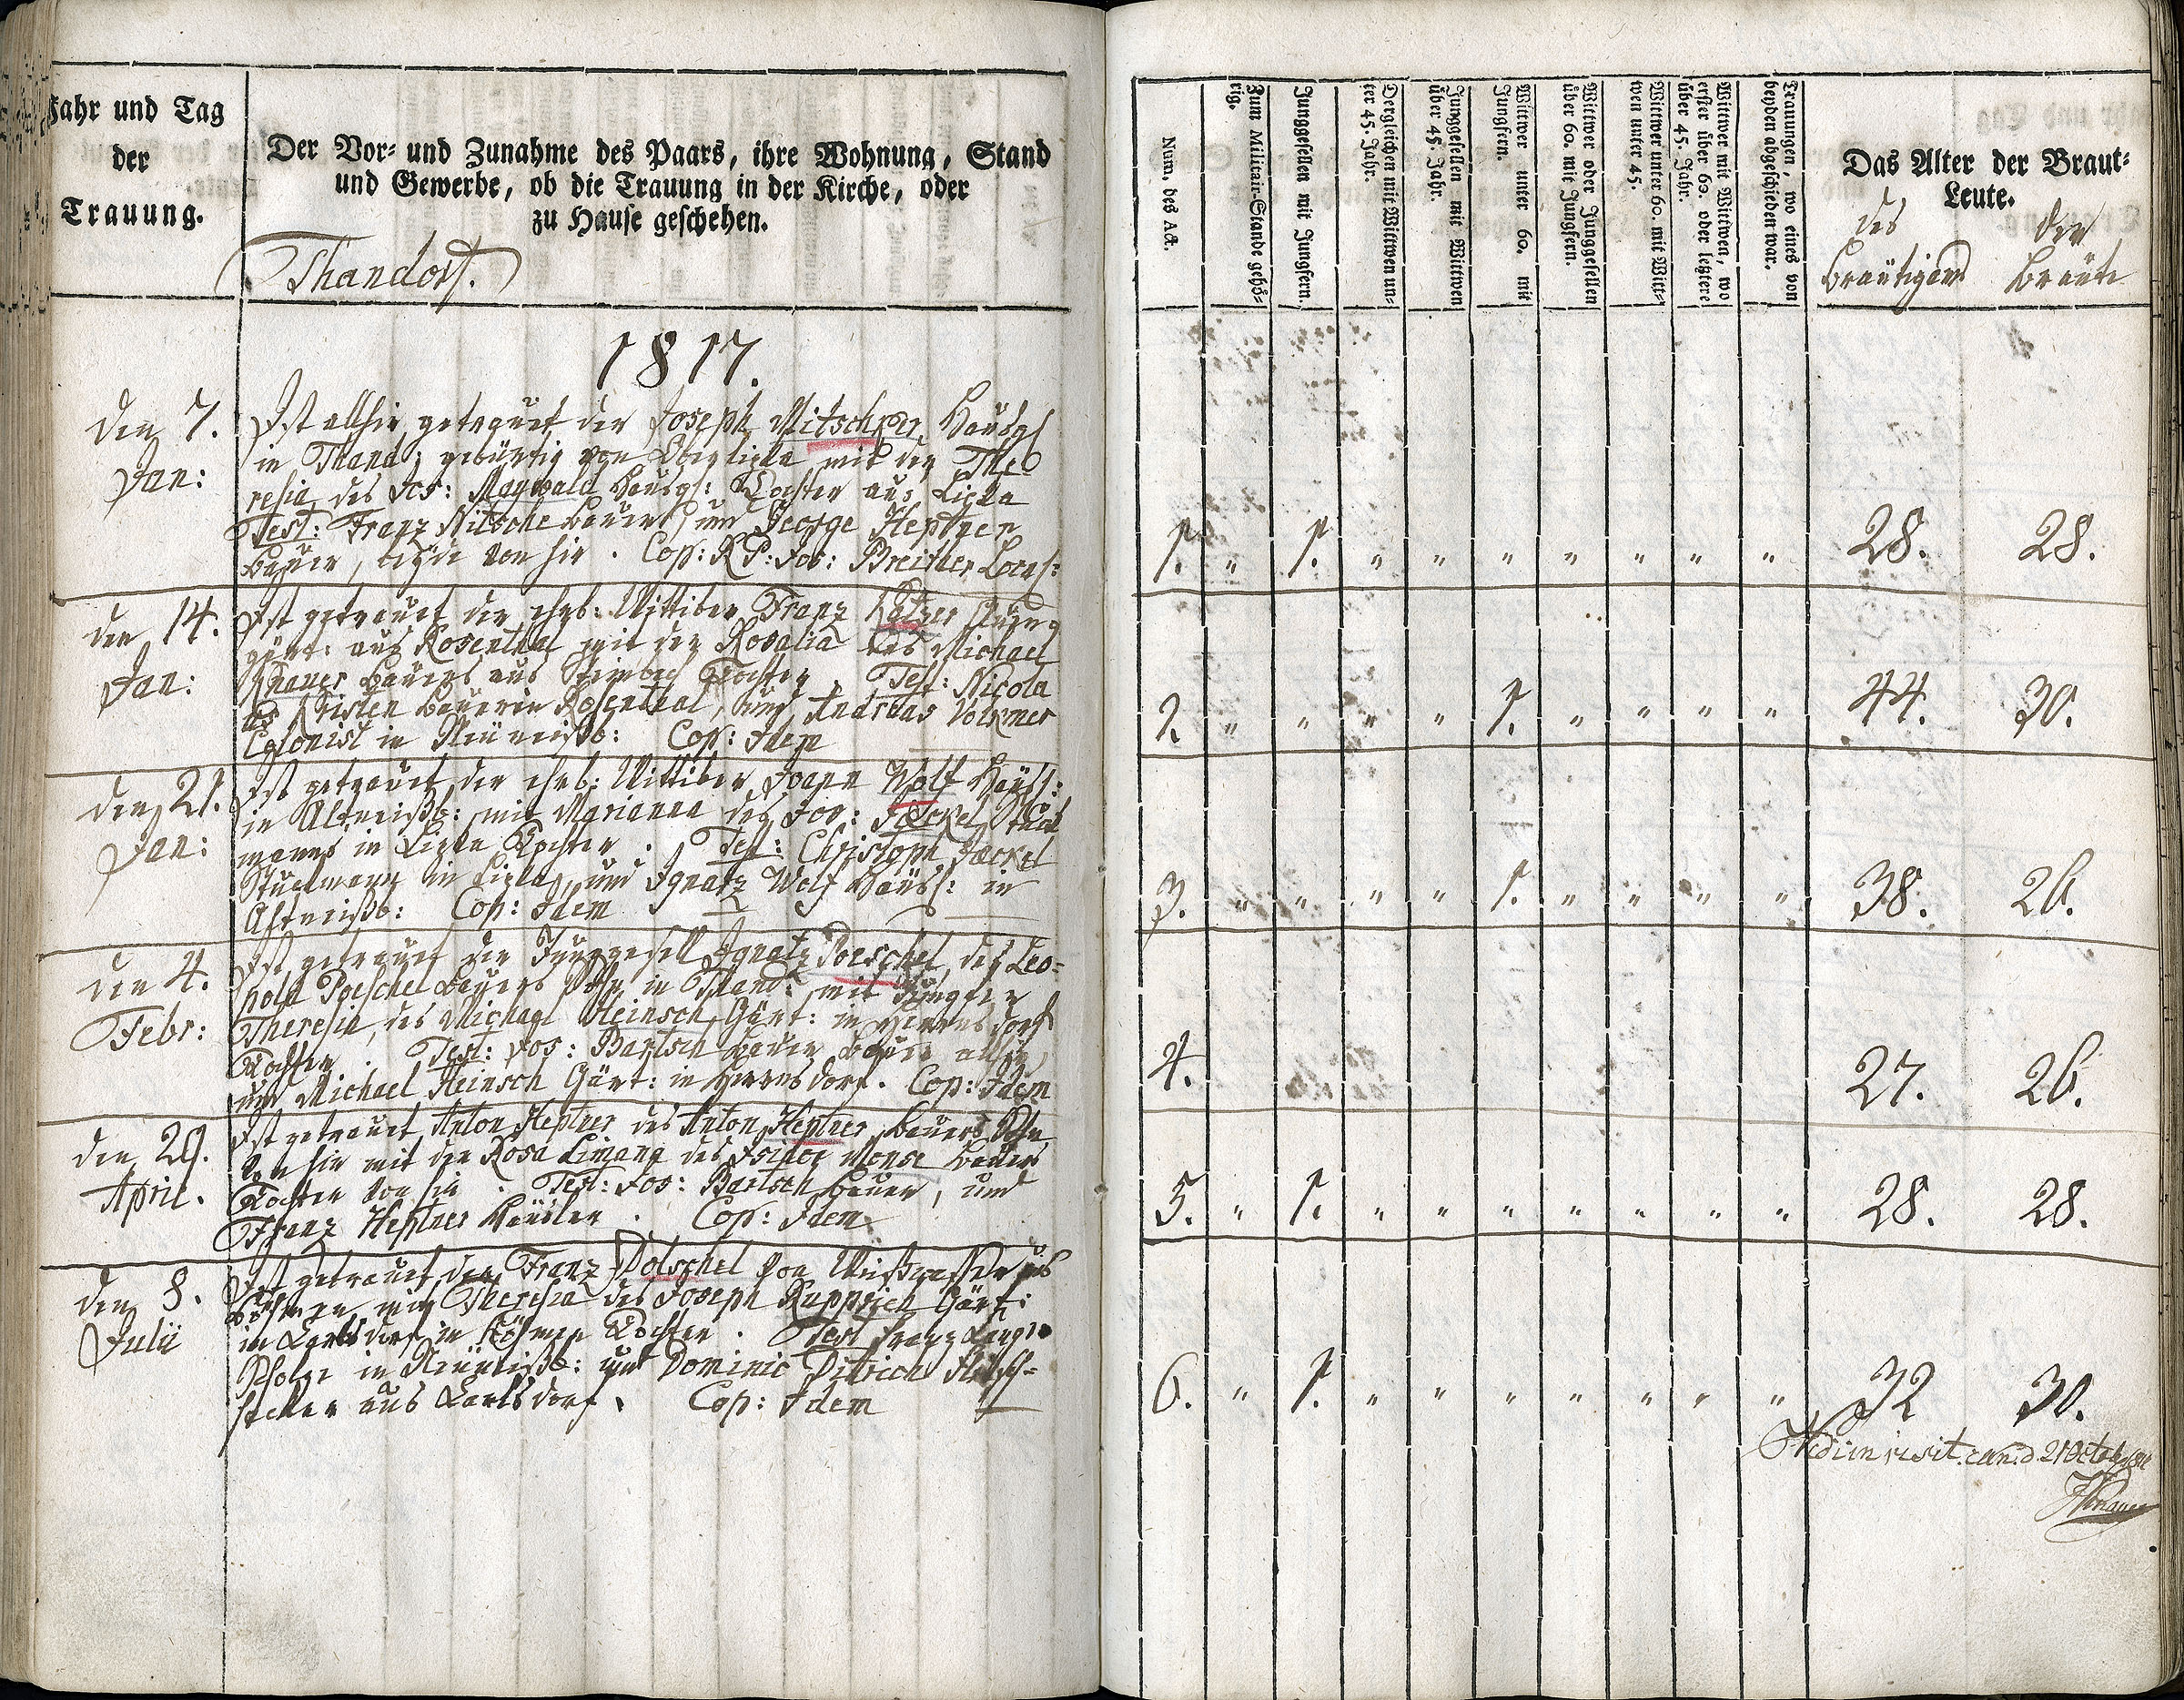 Jahr und Tag
der
Trauung.
Der Vor- und Zunahme des Paars, ihre Wohnung, Stand
und Gewerbe, ob die Trauung in der Kirche, oder
zu Hause geschehen.
Thandorf.
1817.
den 7.
Jan:
Ist allhier getrauet der Joseph Mitschker Häusg
in Thand: gebürtig von mit der The
resia des Jos: Maywald Häusg: Tochter aus
Test: Franz Nitsche Bauer, und George Heptner
Bauer, beyde von hier. Cop: R P: Jos: Breither Local:
den 14.
Jan:
Ist getrauet der ehrb: Wittiber Franz Katzer
gärt: aus Rosenthal mit der Rosalia des Michael
Knauer Bauers aus Tochter. Test: Nicola
us Kristen Bauer in Rosenthal, und Andreas Volkmer
Colonist in Neuneißb: Cop: Idem
den 21.
Jan:
Ist getrauet der ehrb: Wittiber Joann Wolf Häusl:
in Altneißb: mit Marianna des Jos: Jäckel Stück
manns in Tochter. Test: Christoph Jäckel
Stückmann in und Ignatz Wolf Häusl: in
Altneißb: Cop: Idem
den 4.
Febr:
Ist getrauet der Junggesell Ignatz Poeschel, des Leo=
pold Poeschel Bauers Sohn in Thand: mit Jungfer
Theresia, des Michael Heinsch Gärt: in Herrnsdorf
Tochter. Test: Jos: Bartsch Bauer
und Michael Heinsch Gärt: in Herrnsdorf. Cop: Idem
den 29.
April.
Ist getrauet Anton Heptner des Anton Heptner Bauers Sohn
von hier mit der Rosa des Isidor Monse Bauers
Tochter von hier. Test: Jos: Bartsch Bauer, und
Franz Heptner Häusler. Cop: Idem
den 8.
Julii
Ist getrauet der Franz Polschel von aus
Böhmen, mit Theresia des Joseph Rupprich Gärt:
in Karlsdorf in Böhmen Tochter. Test Franz Langer
in Neuneißb: und Dominic Ditrich
aus Karlsdorf. Cop: Idem
Num. des Act.
Zum Militair-Stande gehö-
rig.
Junggesellen mit Jungfern.
Dergleichen mit Wittwen un-
ter 45. Jahr.
Junggesellen mit Wittwen
über 45. Jahr.
Wittwer unter 60. mit
Jungfern.
Wittwer oder Junggesellen
über 60. mit Jungfern.
Wittwer unter 60. mit Witt-
wen unter 45.
Wittwer mit Wittwen, wo
erster über 60. oder letztere
über 45. Jahr.
Trauungen, wo eines von
beyden abgeschieden war.
Das Alter der Braut-
Leute.
des
Bräutigams
der
Bräute
1. " 1. " " " " " " " 28. 28.
2. " " " " 1. " " " " 44. 30.
3. " " " " 1. " " " " 38. 26.
4. 27. 26.
5. " 1. " " " " " " " 28. 28.
6. " 1. " " " " " " " 32 30.